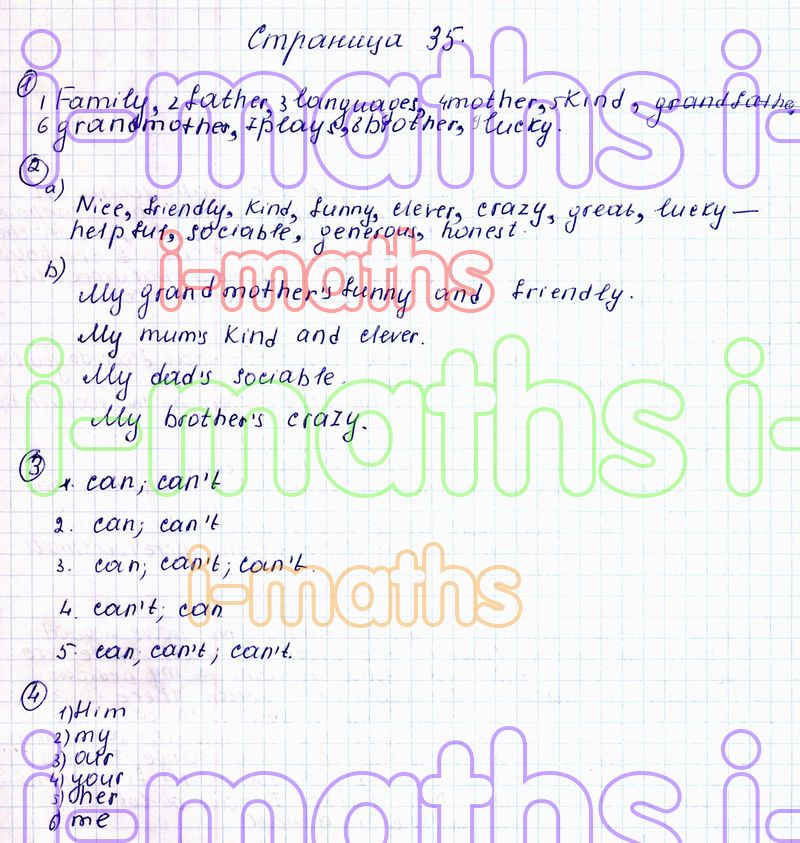 Страница 35.
1
1 Family, 2 father, 3 languages, 4 mother, 5 kind, grandfather,
6 grandmother, 7 plays, 8 brother, 9 lucky.
2
a)
Nice, friendly, kind, funny, clever, crazy, great, lucky —
helpful, sociable, generous, honest.
b)
My grandmother's funny and friendly.
My mum's kind and clever.
My dad's sociable.
My brother's crazy.
3
1. can; can't
2. can; can't
3. can; can't; can't.
4. can't; can
5. can, can't; can't.
4
1) Him
2) my
3) our
4) your
5) her
6) me
i-maths i-maths
i-maths
i-maths i-maths
i-maths
i-maths i-maths